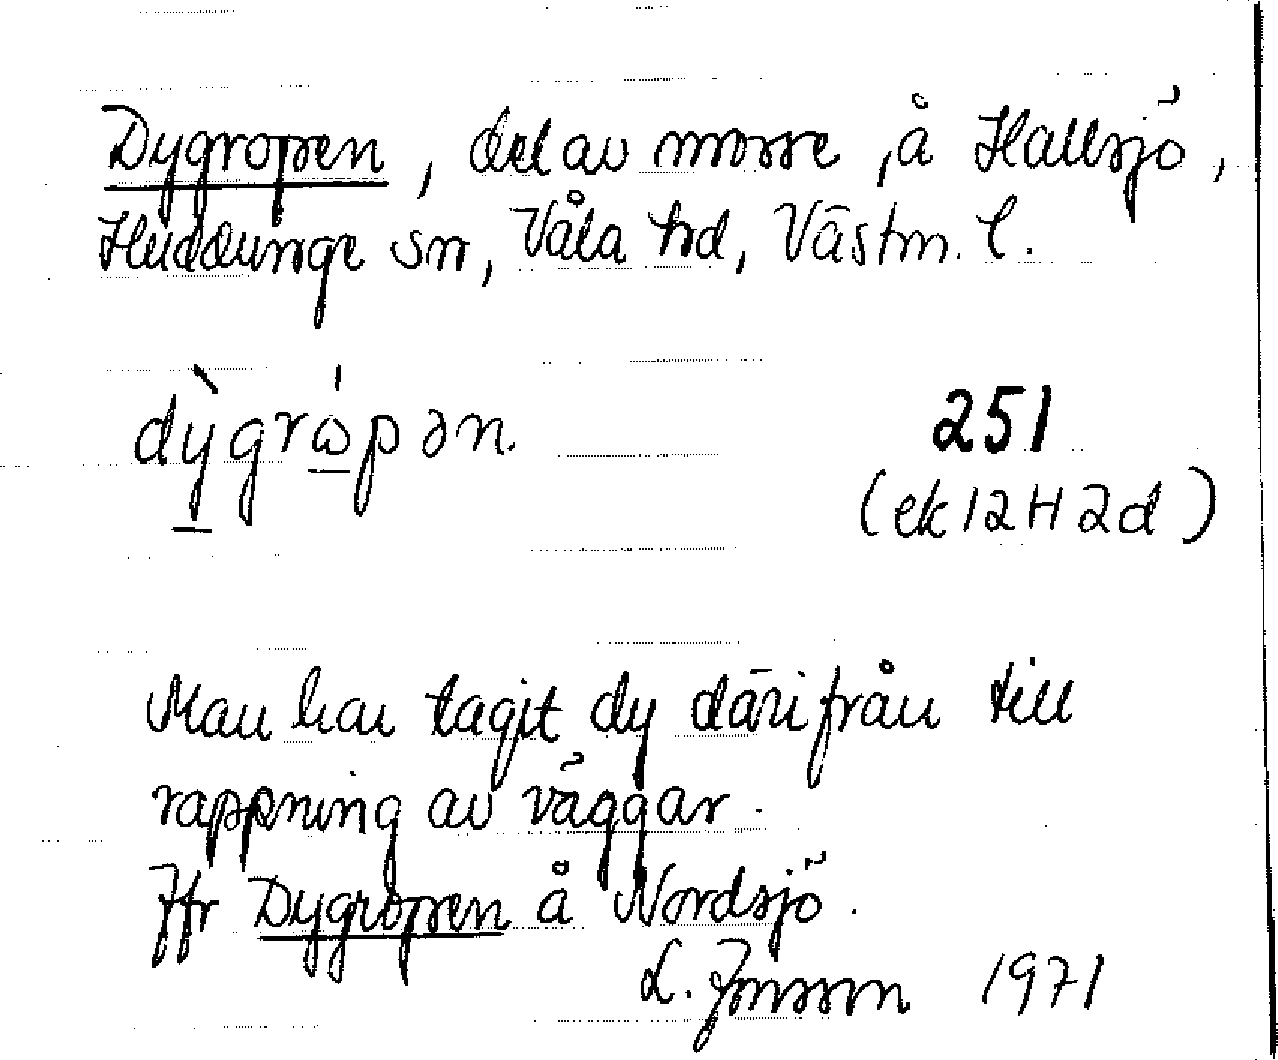 Dygropen, del av mosse, å Hallsjö,
Huddunge sn, Våla hd, Västm. l.
dỳgrɷ́pən.
251
(ek 12H2d)
Man har tagit dy därifrån till
rappning av väggar.
Jfr Dygropen å Nordsjö.
L. Jonsson 1971